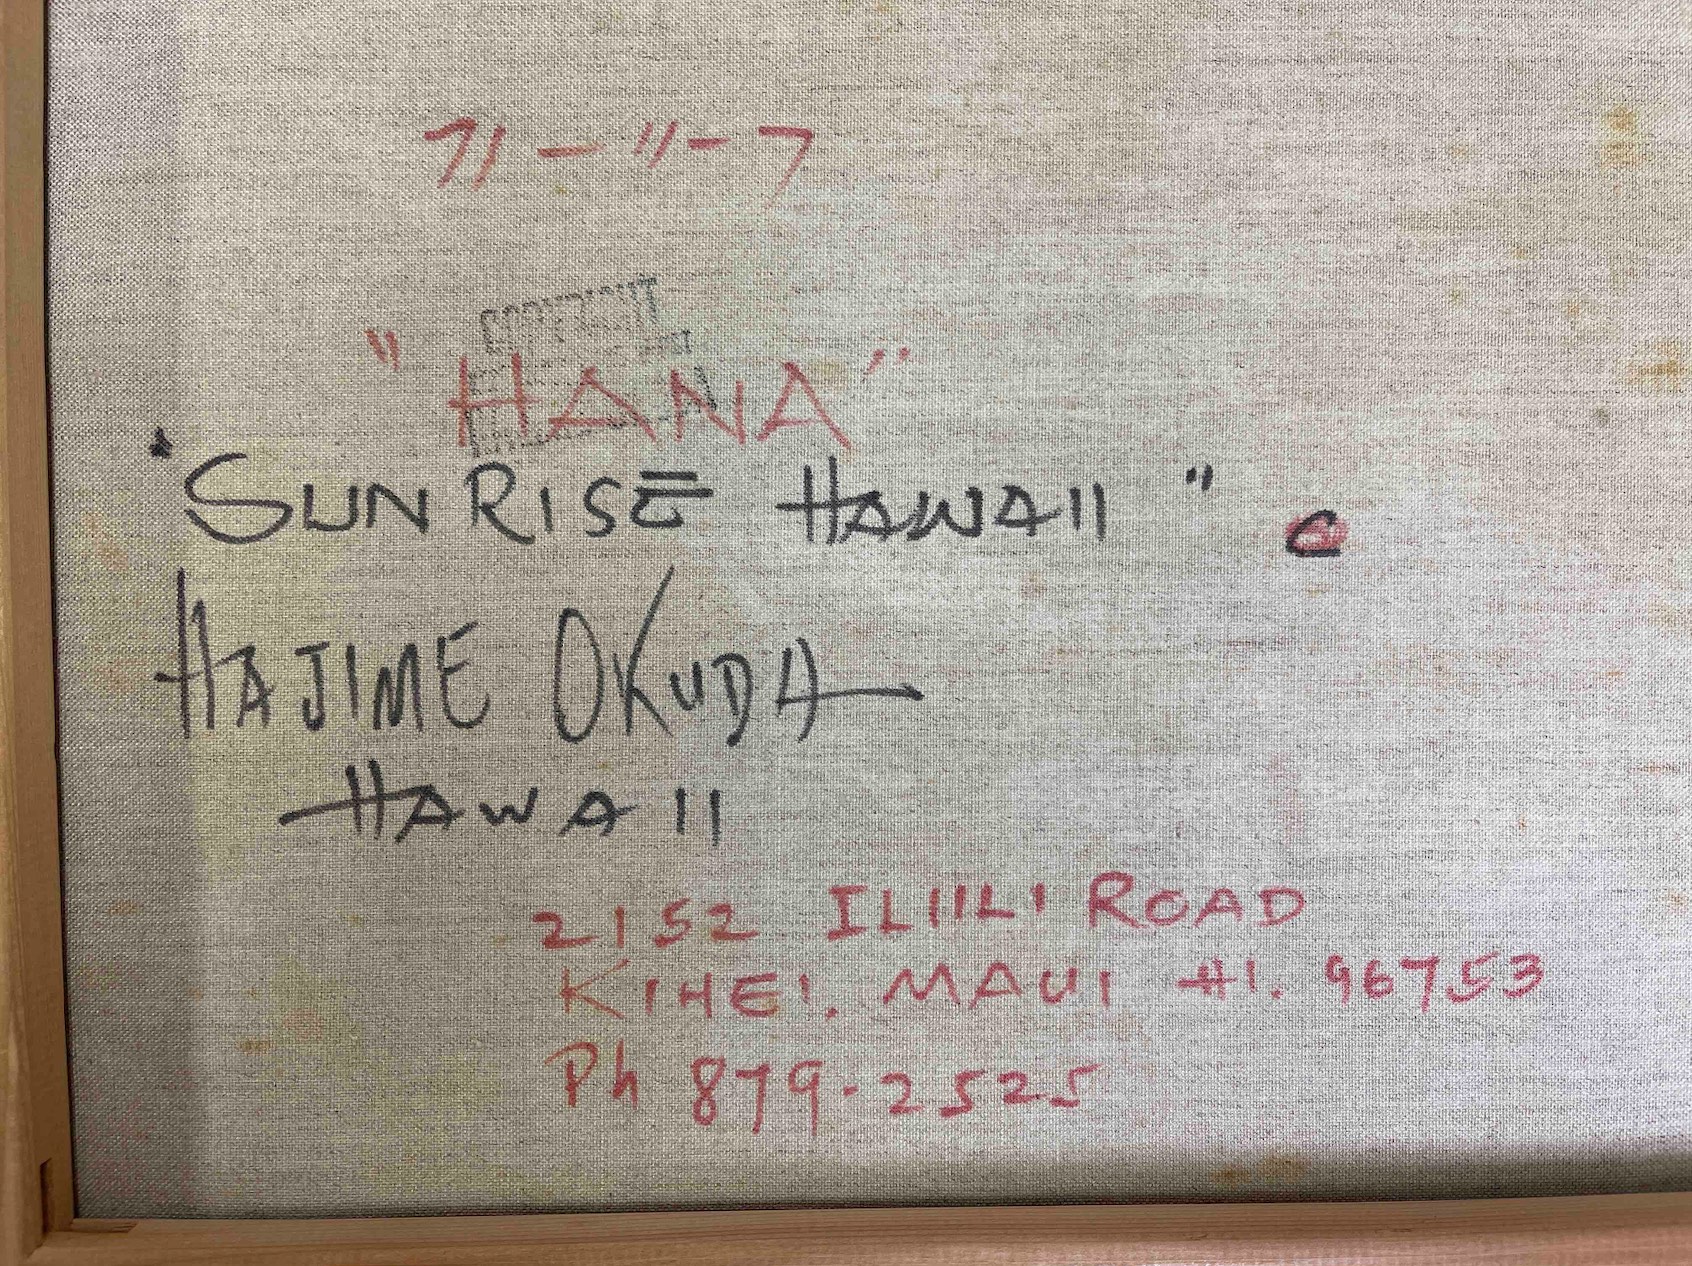 71-11-7
COPYRIGHT
"HANA"
"SUNRISE HAWAII"
HAJIME OKUDA
HAWAII
2152 ILIILI ROAD
KIHEI. MAUI HI. 96753
Ph 879-2525